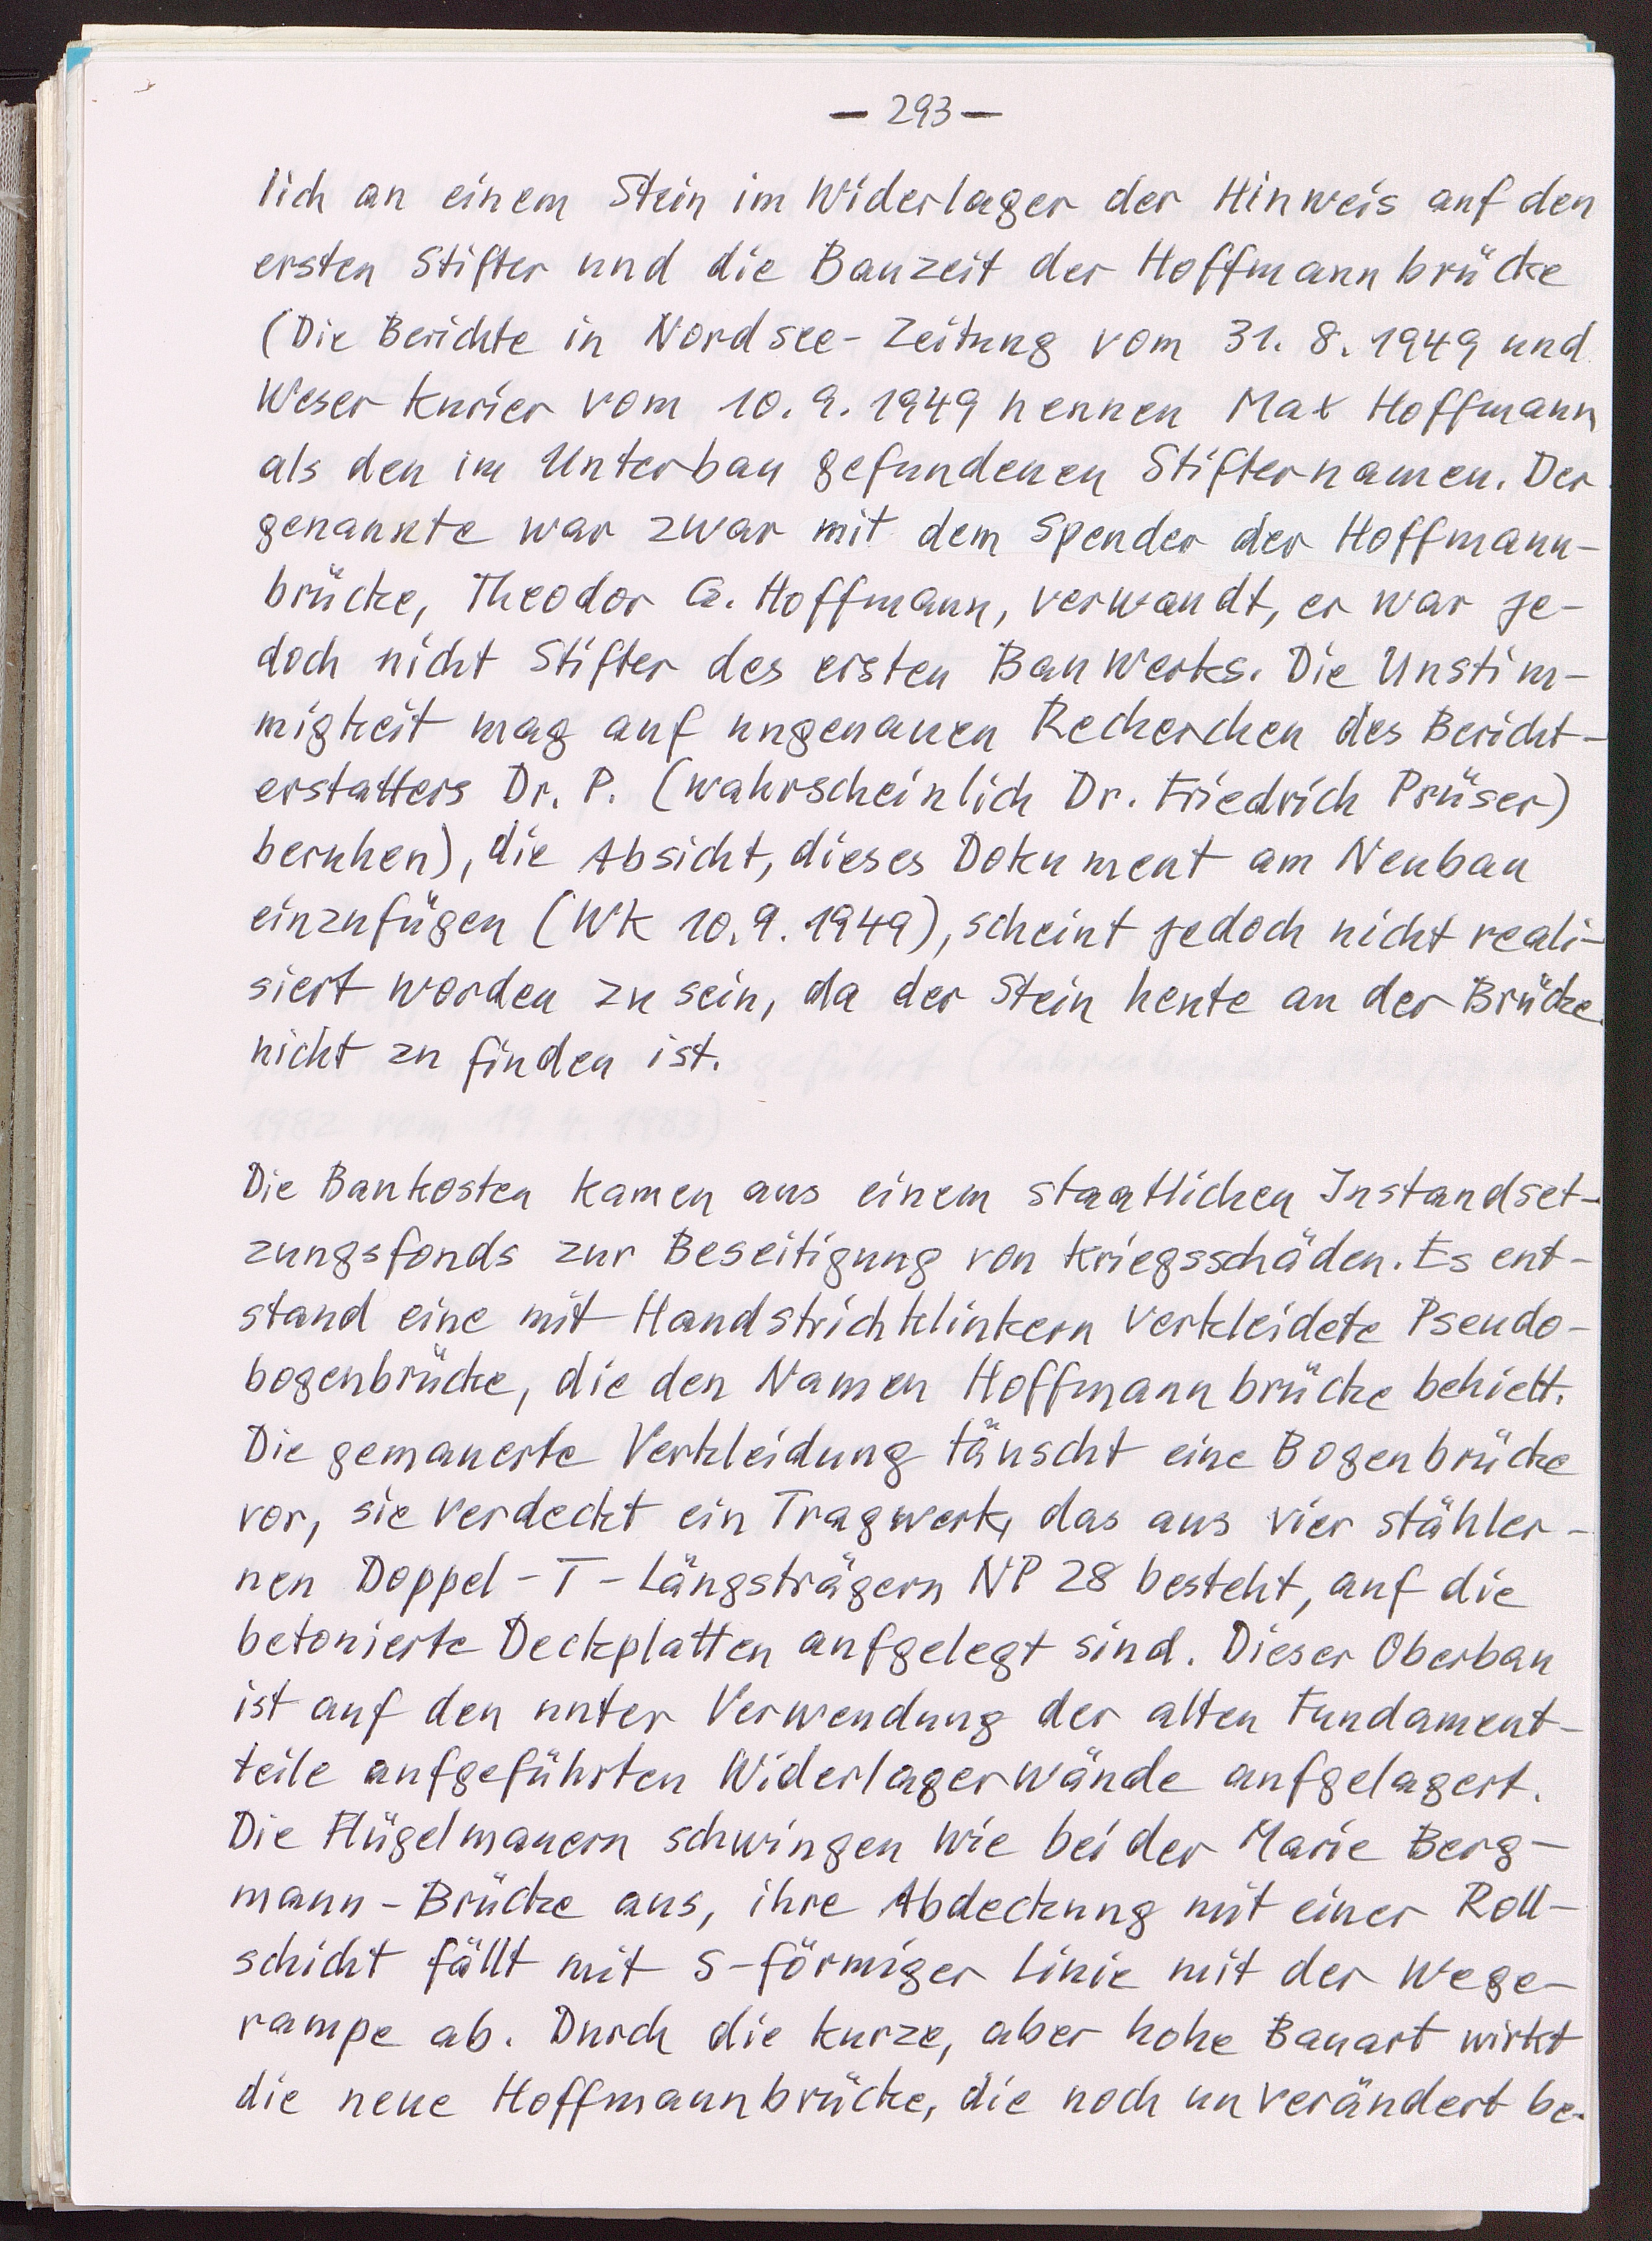 — 293 —
lich an einem Stein im Widerlager der Hinweis auf den
ersten Stifter und die Bauzeit der Hoffmannbrücke
(Die Berichte in Nordsee-Zeitung vom 31. 8. 1949 und
Weser Kurier vom 10. 9. 1949 nennen Max Hoffmann
als den im Unterbau gefundenen Stifternamen. Der
genannte war zwar mit dem Spender der Hoffmann-
brücke, Theodor G. Hoffmann, verwandt, er war je-
doch nicht Stifter des ersten Bauwerks. Die Unstim-
migkeit mag auf ungenauen Recherchen des Bericht-
erstatters Dr. P. (wahrscheinlich Dr. Friedrich Prüser)
beruhen), die Absicht, dieses Dokument am Neubau
einzufügen (WK 10.9.1949), scheint jedoch nicht reali-
siert worden zu sein, da der Stein heute an der Brücke
nicht zu finden ist.
Die Baukosten kamen aus einem staatlichen Instandset-
zungsfonds zur Beseitigung von Kriegsschäden. Es ent-
stand eine mit Handstrichklinkern verkleidete Pseudo-
bogenbrücke, die den Namen Hoffmannbrücke behielt.
Die gemauerte Verkleidung täuscht eine Bogenbrücke
vor, sie verdeckt ein Tragwerk, das aus vier stähler-
nen Doppel-T-Längsträgern NP 28 besteht, auf die
betonierte Deckplatten aufgelegt sind. Dieser Oberbau
ist auf den unter Verwendung der alten Fundament-
teile aufgeführten Widerlagerwände aufgelagert.
Die Flügelmauern schwingen wie bei der Marie Berg-
mann-Brücke aus, ihre Abdeckung mit einer Roll-
schicht fällt mit S-förmiger Linie mit der Wege-
rampe ab. Durch die kurze, aber hohe Bauart wirkt
die neue Hoffmannbrücke, die noch unverändert be-